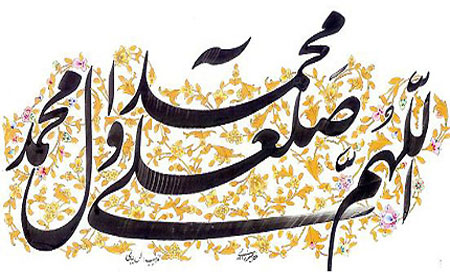 اللّهم صَل علی محمد و آل محمد